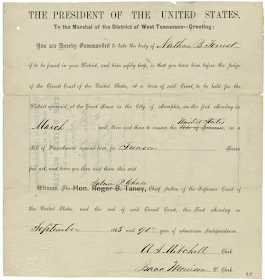 THE PRESIDENT OF THE UNITED STATES,
To the Marshal of the District of West Tennessee—Greeting:
You are Hereby Commanded to take the body of Nathan B. Forrest
if to be found in your District, and him safely keep, so that you have him before the Judge
of the Circuit Court of the United States, at a term of said Court, to be held for the
District aforesaid, at the Court House in the City of Memphis, on the first Monday in
March next, then and there to answer the United States
State of Tennessee, on a
Bill of Indictment against him, for Treason
fail not, and have you then and there this writ.
Salmon P. Chase
Witness The Hon. Roger B. Taney, Chief Justice of the Supreme Court of the
United States, and the seal of said Circuit Court, this first Monday in
September 1865 and 90 year of American Independence.
A. S. Mitchell Clerk
Isaac D. Clerk